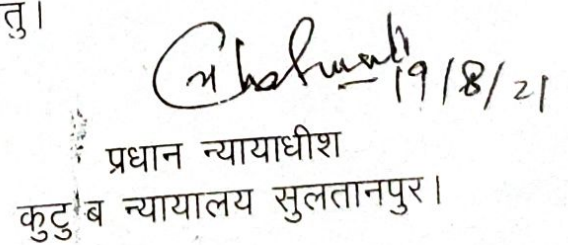 तु।
19/8/21
प्रधान न्यायाधीश
कुटु ब न्यायालय सुलतानपुर।